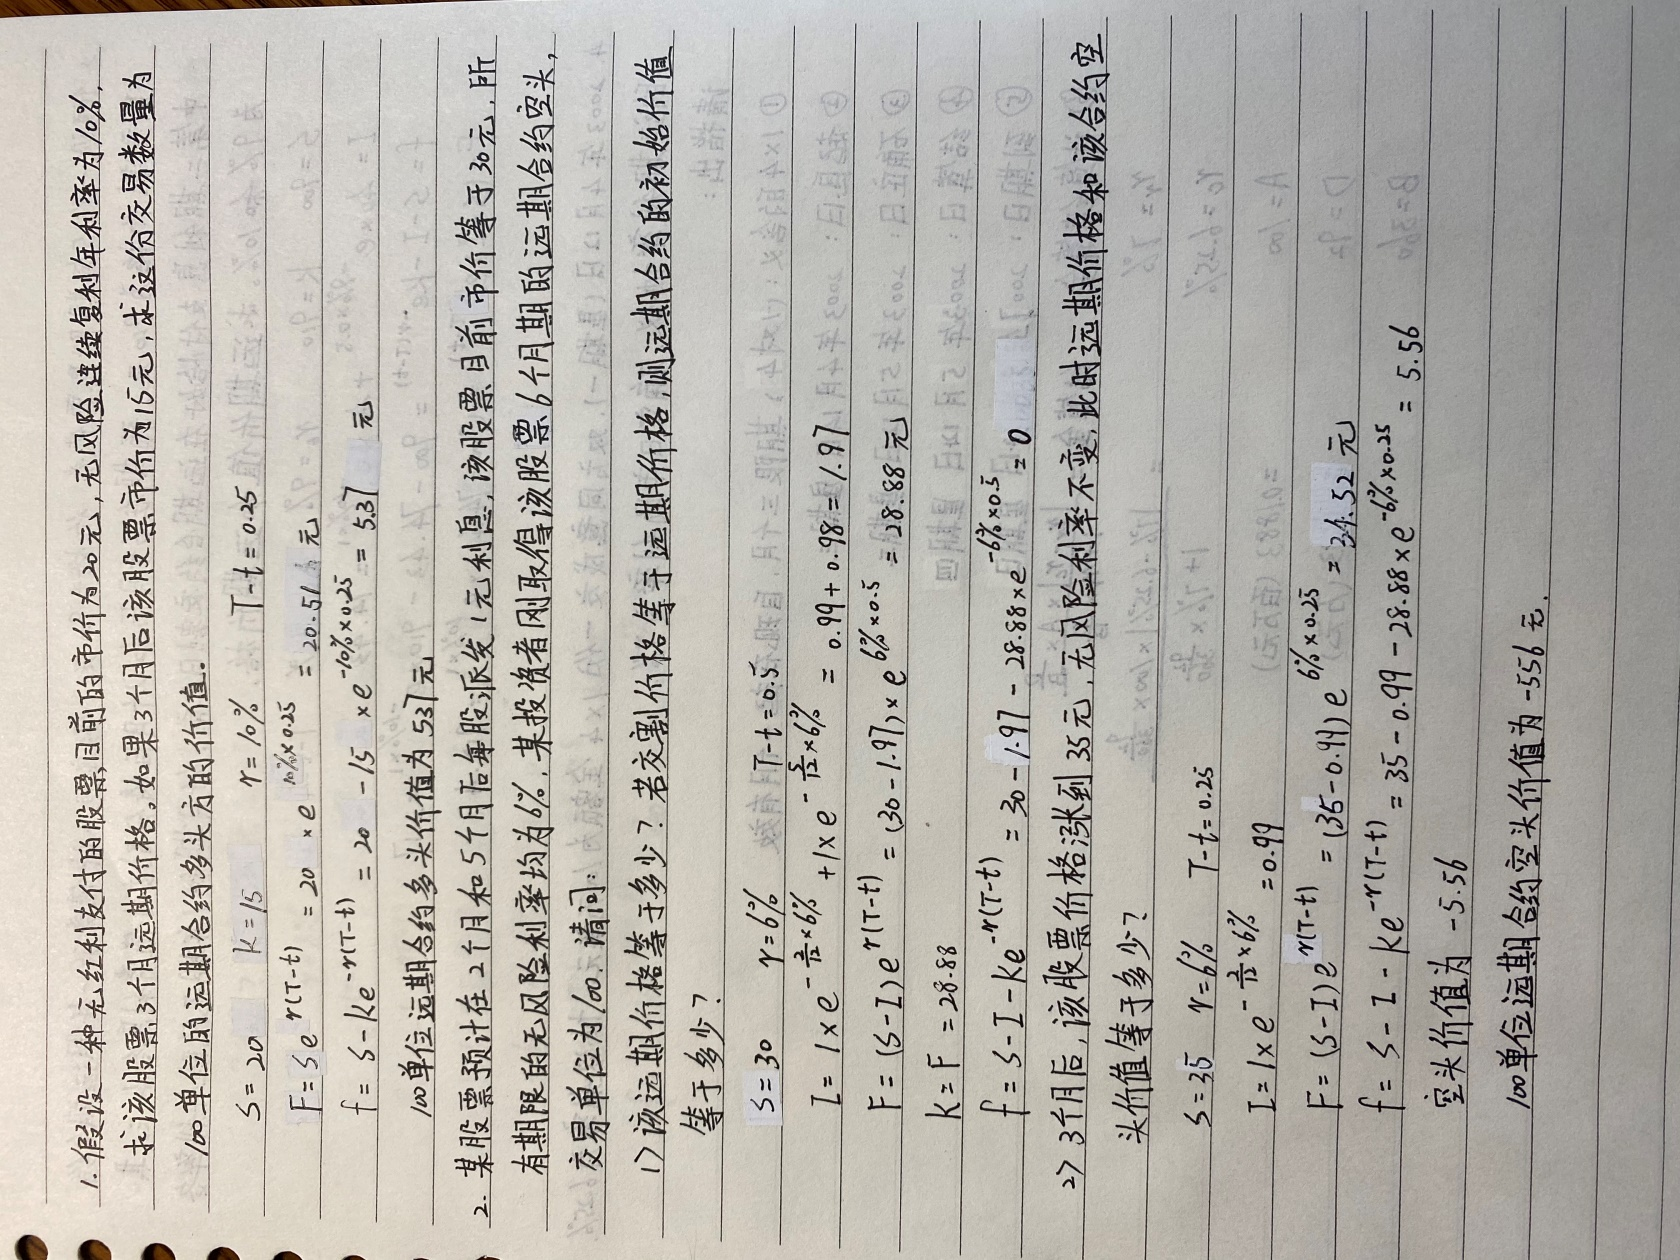 1. 假设一种无红利支付的股票,目前的市价为20元,无风险连续复利年利率为10%,
求该股票3个月远期价格。如果3个月后该股票市价为15元,求这份交易数量为
100单位的远期合约多头方的价值.
S=20 K=15 r=10% T-t=0.25
F=Se^r(T-t) =20×e^10%×0.25 =20.51 元
f=S-Ke^-r(T-t) =20-15×e^-10%×0.25 =5.37 元
100单位远期合约多头价值为537元
2. 某股票预计在2个月和5个月后每股派发1元利息,该股票目前市价等于30元,所
有期限的无风险利率均为6%,某投资者刚取得该股票6个月期的远期合约空头,
交易单位为100.请问:
1)该远期价格等于多少?若交割价格等于远期价格,则远期合约的初始价值
等于多少?
S=30 r=6% T-t=0.5
I=1×e^-2/12×6% +1×e^-5/12×6% =0.99+0.98=1.97
F=(S-I)e^r(T-t) =(30-1.97)×e^6%×0.5 =28.88元
K=F=28.88
f=S-I-Ke^-r(T-t) =30-1.97-28.88×e^-6%×0.5 =0
2)3个月后,该股票价格涨到35元,无风险利率不变,此时远期价格和该合约空
头价值等于多少?
S=35 r=6% T-t=0.25
I=1×e^-2/12×6% =0.99
F=(S-I)e^r(T-t) =(35-0.99)e^6%×0.25 =34.52元
f=S-I-Ke^-r(T-t) =35-0.99-28.88×e^-6%×0.25 =5.56
空头价值为-5.56
100单位远期合约空头价值为-556元.